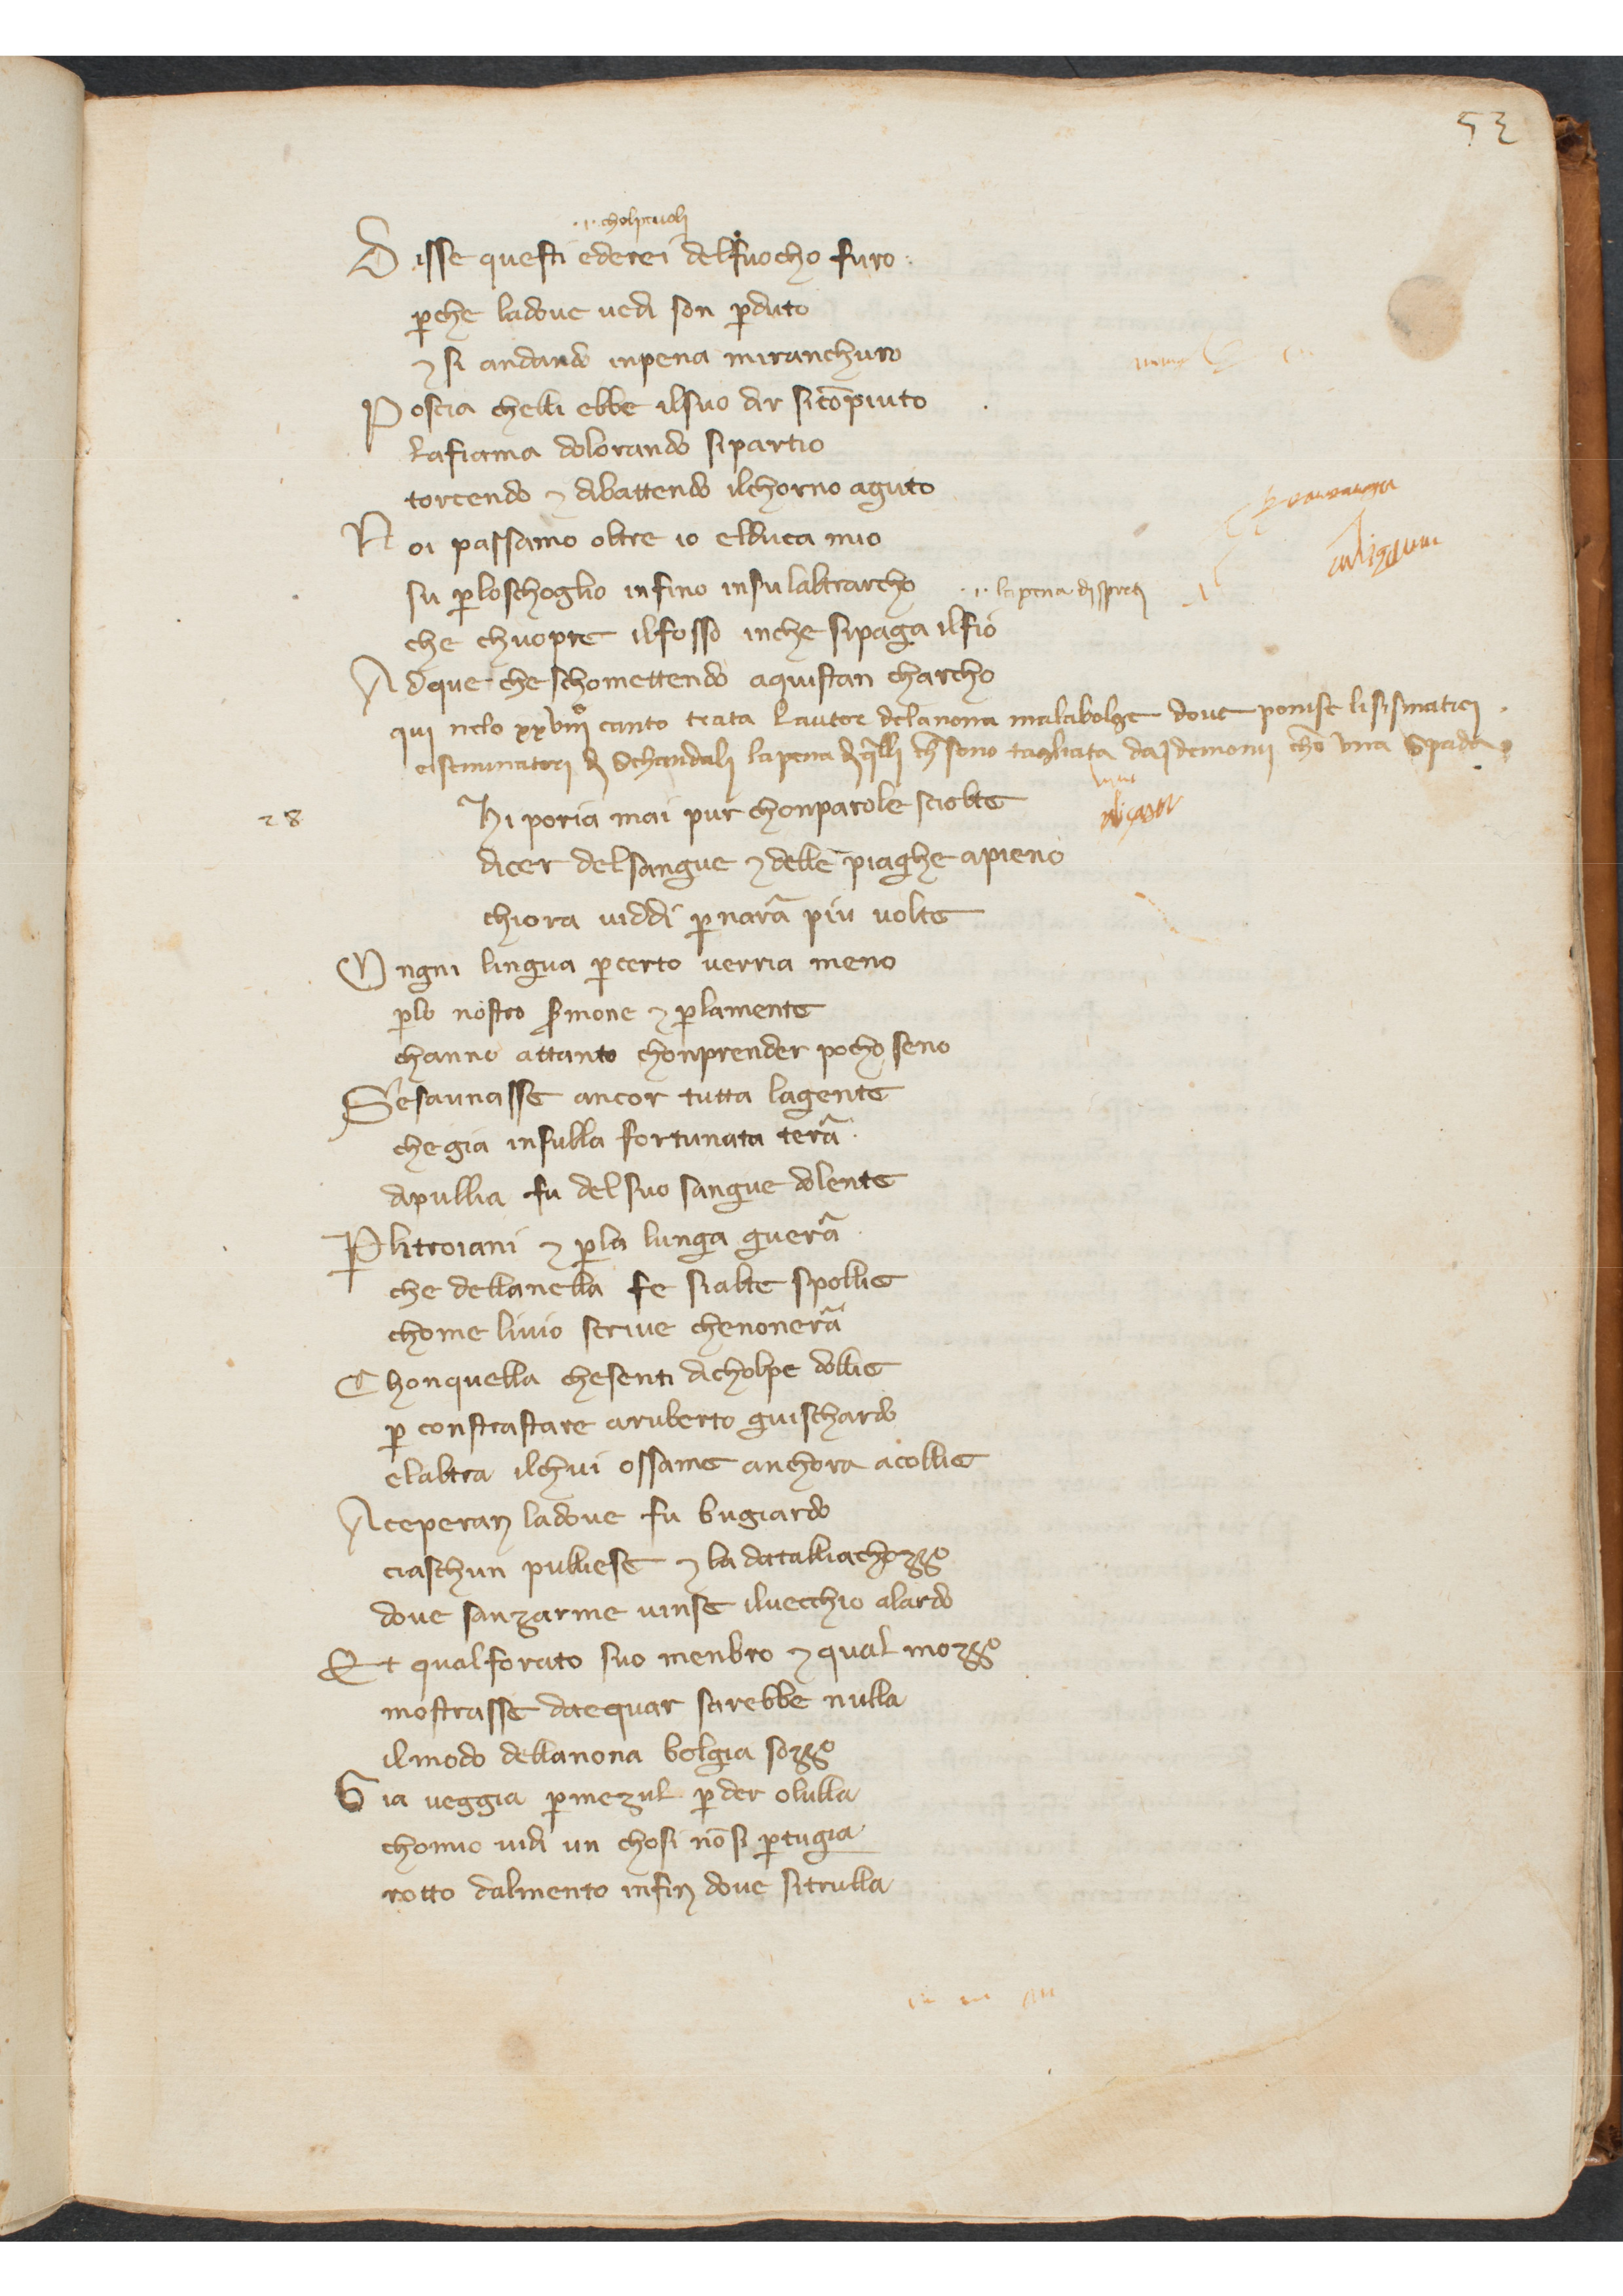 53
cholpevoli
Disse questi ederei delfuocho furo
ꝑche ladove vedi son ꝑduto
⁊ si andando inpena miranchuro
Poscia chelli ebbe ilsuo dir sicōpiuto
Lafiama dolorando sipartio
torcendo ⁊ dibattendo ilchorno aguto
Noi passamo oltre io elduca mio
su ꝑloschoglio infino insulaltrarcho
la pena di
che chuopre ilfosso inche sipaga ilfio
Adque che schomettendo aquistan charcho
qui nelo xxviiiº canto trata Lautore delanona malabolge dove ponisse li sismatici
eiseminatori di schandali lapena di q̄lli ch̄ sono tagliata dai demonii chō una spada
28
Hi poria mai pur chonparole sciolte
dicer delsangue ⁊ delle piaghe apieno
chiora viddi ꝑ narā piu volte
Ongni lingua ꝑcerto verria meno
ꝑlo nostro s̄mone ⁊ ꝑlamente
channo attanto chonprender pocho seno
Sesaunasse ancor tutta lagente
chegia insulla fortunata terā
dipullia fu delsuo sangue dolente
Ꝑ litroiani ⁊ ꝑla lunga guerā
che dellanella fe sialte spollie
chome livio scrive chenonerā
Chonquella chesenti dicholpe dollie
ꝑ constrastare aruberto guischardo
elaltra ilchui ossame anchora acollie
Aceperan ladove fu bugiardo
ciaschun pulliese ⁊ la datalliachozzo
dove sanzarme vinse ilvecchio alardo
Et qualforato suo menbro ⁊ qual mozzo
mostrasse daequar sarebbe nulla
ilmodo dellanona bolgia sozzo
Gia veggia ꝑ mezul ꝑder olulla
chomio vidi un chosi nōsi ꝑtugia
rotto dalmento infin dove sitrulla